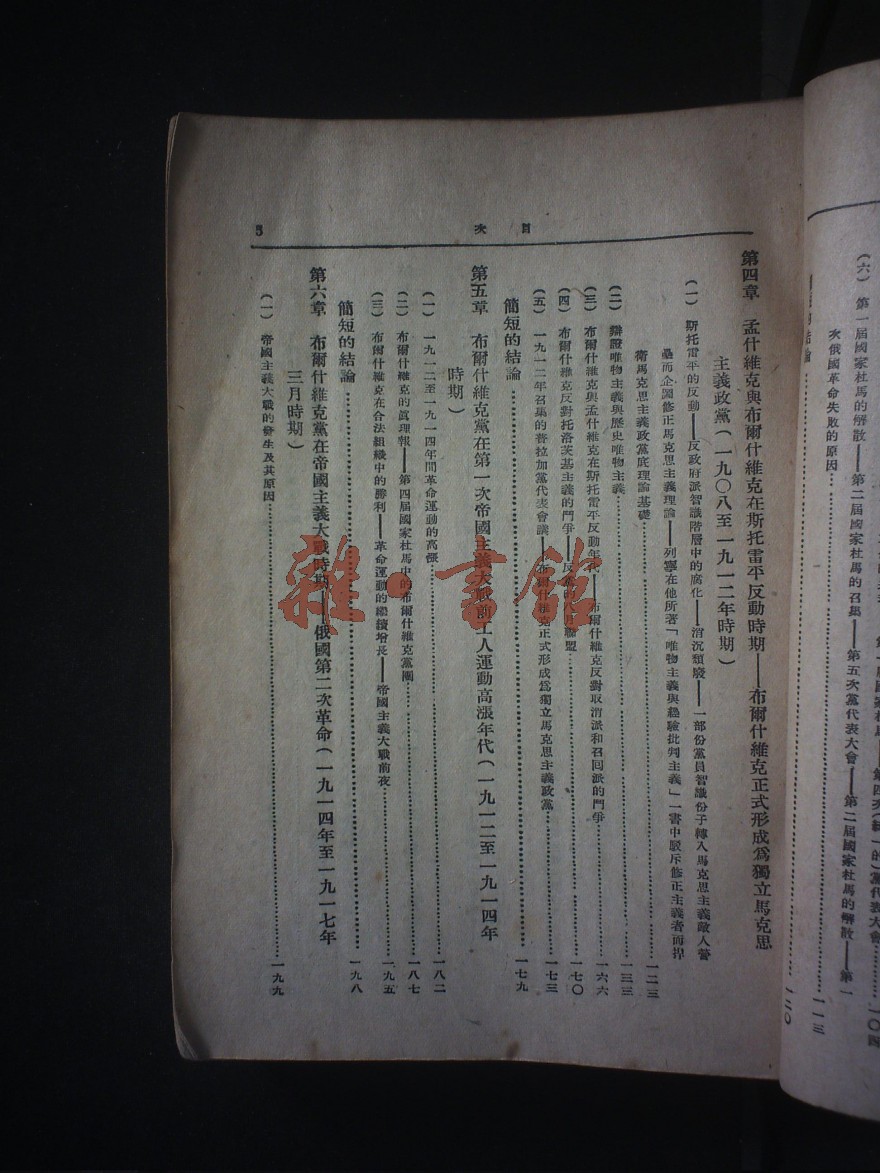 （六）　第一屆國家杜馬的解散——第二屆國家杜馬的召集——第五次黨代表大會——第二屆國家杜馬的解散——第一
次俄國革命失敗的原因…………一一三
結論…………一二〇
目　次
5
第四章　孟什維克與布爾什維克在斯托雷平反動時期——布爾什維克正式形成爲獨立馬克思
主義政黨（一九〇八至一九一二年時期）
（一）　斯托雷平的反動——反政府派智識階層中的腐化——消沉頹廢——一部份黨員智識份子轉入馬克思主義敵人營
壘而企圖修正馬克思主義理論——列寧在他所著「唯物主義與經驗批判主義」一書中駁斥修正主義者而捍
衛馬克思主義政黨底理論基礎…………一二三
（二）　辯證唯物主義與歷史唯物主義…………一三三
（三）　布爾什維克與孟什維克在斯托雷平反動年代——布爾什維克反對取消派和召回派的鬥爭…………一六六
（四）　布爾什維克反對托洛茨基主義的鬥爭——反黨的八月聯盟…………一七〇
（五）　一九一二年召集的普拉加黨代表會議——布爾什維克正式形成爲獨立馬克思主義政黨…………一七三
簡短的結論…………一七九
第五章　布爾什維克黨在第一次帝國主義大戰前工人運動高漲年代（一九一二至一九一四年
時期）
（一）　一九一二至一九一四年間革命運動的高漲…………一八二
（二）　布爾什維克的眞理報——第四屆國家杜馬中的布爾什維克黨團…………一八七
（三）　布爾什維克在合法組織中的勝利——革命運動的繼續增長——帝國主義大戰前夜…………一九五
簡短的結論…………一九八
第六章　布爾什維克黨在帝國主義大戰時期——俄國第二次革命（一九一四年至一九一七年
三月時期）
（一）　帝國主義大戰的發生及其原因…………一九九
雜·書館